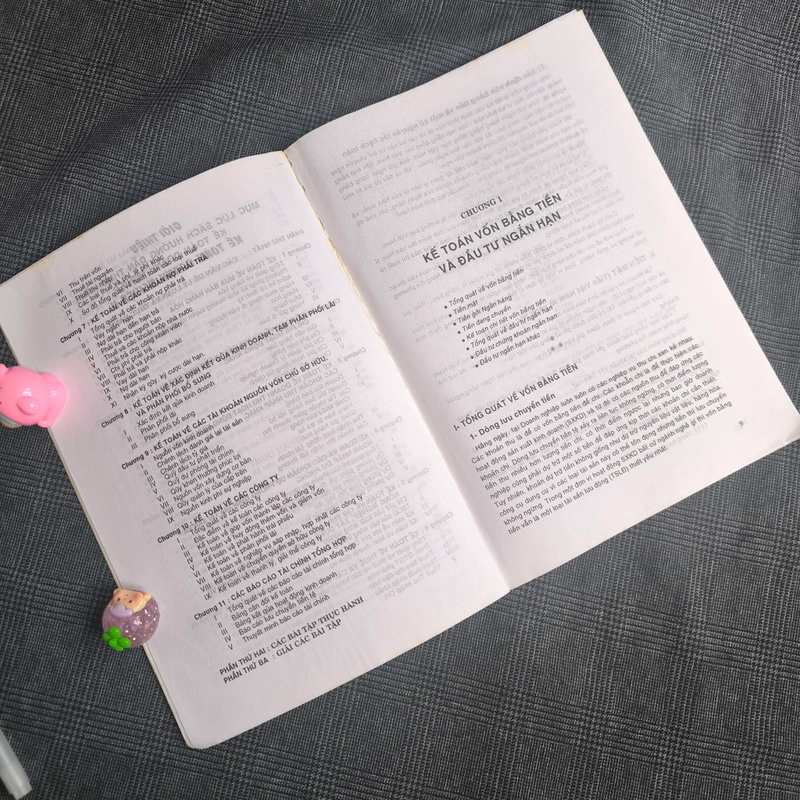 VI Thu trên vốn
VII Thuế tài nguyên
VIII Thuế thu nhập
IX Các loại thuế và phí, lệ phí khác
X Sơ đồ tổng quát về hạch toán các loại thuế
Chương 7 : KẾ TOÁN VỀ CÁC KHOẢN NỢ PHẢI TRẢ
I Tổng quát về các khoản nợ phải trả
II Vay ngắn hạn
III Nợ dài hạn đến hạn trả
IV Phải trả cho người bán
V Thuế và các khoản nộp nhà nước
VI Phải trả cho công nhân viên
VII Chi phí phải trả
VIII Phải trả và phải nộp khác
IX Vay dài hạn
X Nợ dài hạn
XI Nhận ký qũy, ký cược dài hạn
Chương 8 : KẾ TOÁN VỀ XÁC ĐỊNH KẾT QỦA KINH DOANH, TẠM PHÂN PHỐI LÃI
VÀ PHÂN PHỐI BỔ SUNG
I Xác định kết qủa kinh doanh
II Phân phối lãi
III Phân phối bổ sung
Chương 9 : KẾ TOÁN VỀ CÁC TÀI KHOẢN NGUỒN VỐN CHỦ SỞ HỮU.
I Nguồn vốn kinh doanh
II Chênh lệch đánh giá lại tài sản
III Chênh lệch tỷ giá
IV Quỹ đầu tư phát triển
V Quỹ dự phòng tài chính
VI Quỹ khen thưởng phúc lợi
VII Nguồn vốn xây dựng cơ bản
VIII Qũy quản lý của cấp trên
IX Nguồn kinh phí sự nghiệp
Chương 10 : KẾ TOÁN VỀ CÁC CÔNG TY
I Tổng quát về các công ty
II Đặc điểm về kế toán các công ty
III Kế toán về góp vốn thành lập các công ty
IV Kế toán về huy động thêm vốn và giảm vốn
V Kế toán về phát hành trái phiếu
VI Kế toán về phân phối lãi
VII Kế toán về nghiệp vụ sáp nhập, hợp nhất các công ty
VIII Kế toán về chuyển quyền sở hữu công ty
IX Kế toán về thanh lý, giải thể công ty
Chương 11 : CÁC BÁO CÁO TÀI CHÍNH TỔNG HỢP
I Tổng quát về các báo cáo tài chính tổng hợp
II Bảng cân đối kế toán
III Bảng kết qủa hoạt động kinh doanh
IV Báo cáo lưu chuyển tiền tệ
V Thuyết minh báo cáo tài chính
PHẦN THỨ HAI : CÁC BÀI TẬP THỰC HÀNH
PHẦN THỨ BA : GIẢI CÁC BÀI TẬP
CHƯƠNG 1
KẾ TOÁN VỐN BẰNG TIỀN
VÀ ĐẦU TƯ NGẮN HẠN
• Tổng quát về vốn bằng tiền
• Tiền mặt
• Tiền gởi Ngân hàng
• Tiền đang chuyển
• Kế toán chi tiết vốn bằng tiền
• Tổng quát về đầu tư ngắn hạn
• Đầu tư chứng khoán ngắn hạn
• Đầu tư ngắn hạn khác
I- TỔNG QUÁT VỀ VỐN BẰNG TIỀN
1- Dòng lưu chuyển tiền
Hằng ngày, tại Doanh nghiệp luôn luôn có các nghiệp vụ thu chi xen kẽ nhau.
Các khoản thu là để có vốn bằng tiền để chi. Các khoản chi là để thực hiện các
hoạt động sản xuất kinh doanh (SXKD) và từ đó có các nguồn thu để đáp ứng các
khoản chi. Dòng lưu chuyển tiền tệ xảy ra liên tục không ngừng, có thời điểm lượng
tiền thu nhiều hơn lượng tiền chi, có thời điểm ngược lại nhưng bao giờ doanh
nghiệp cũng phải dự trữ một số tiền để đáp ứng kịp thời các khoản chi cần thiết.
Tuy nhiên, khoản dự trữ tiền không giống như dự trữ nguyên liệu vật liệu, hàng hóa,
công cụ dụng cụ vì các loại tài sản này có thể tồn đọng nhưng vốn thì lưu chuyển
không ngừng. Trong một đơn vị hoạt động SXKD bất cứ ngành nghề gì thì vốn bằng
tiền vẫn là một loại tài sản lưu động (TSLĐ) thiết yếu nhất.
9